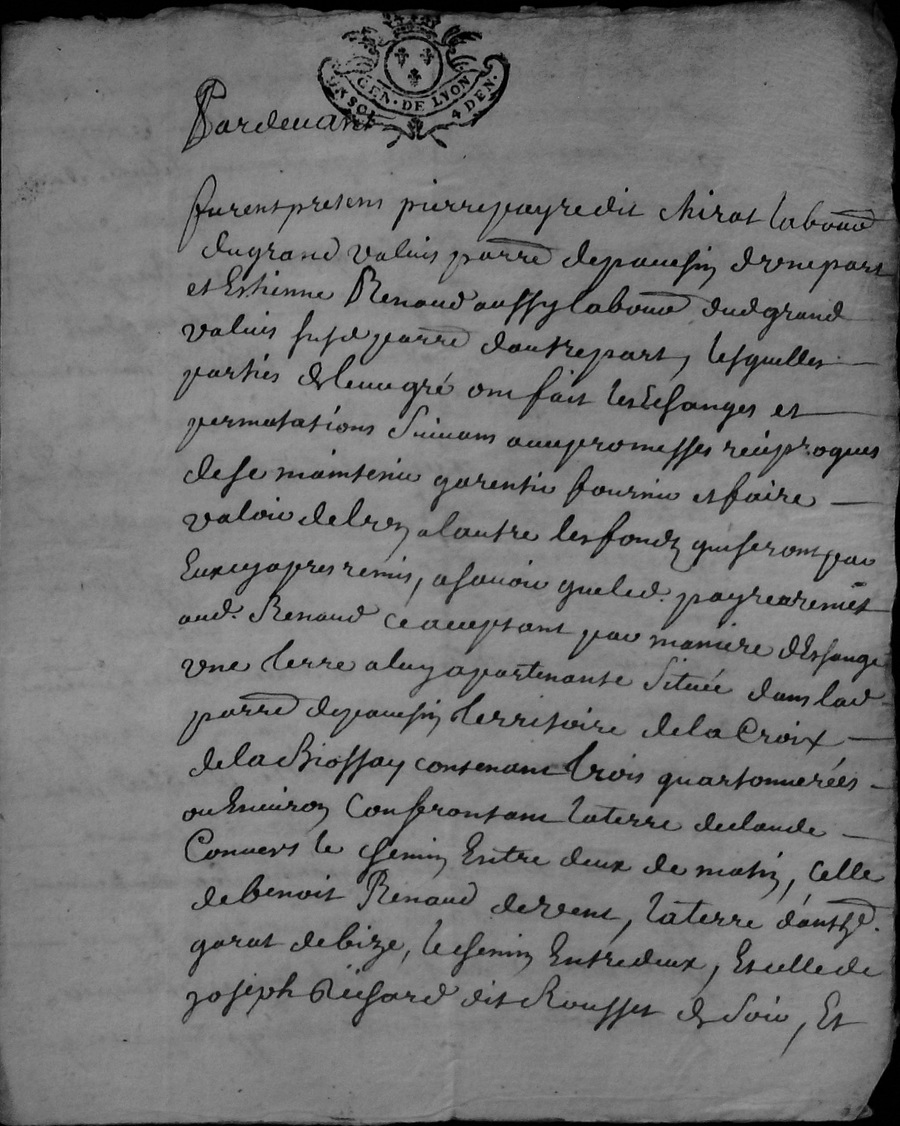 GEN · DE LYON
4 DEN ·
Pardevant
furent presens pierre payre dit chirat labour
du grand valuis parre depouesin dune part
et Estienne Renaud aussy labour dud grand
valuis susd parre dautre part, lesquelles
parties de leur gré ont fait les Eschanges et
permutations suivans avec promesses reciproques
de se maintenir garentir fournir et faire
valoir de lun a lautre les fondz qui seront par
Eux cy apres remis, a savoir que led. payre a remis
aud. Renaud ce acceptant par maniere dEschange
une terre a luy apartenante située dans lad
parre de pouesin territoire de la Croix
de la Biossay contenant trois quartonnerées
ou Environ Confrontant la terre declaude
Convers le chemin Entre deux de matin, Celle
de benoit Renaud devent, la terre danthe.
garat de bize, le chemin Entredeux, Et celle de
joseph Richard dit Rousset de soir, Et